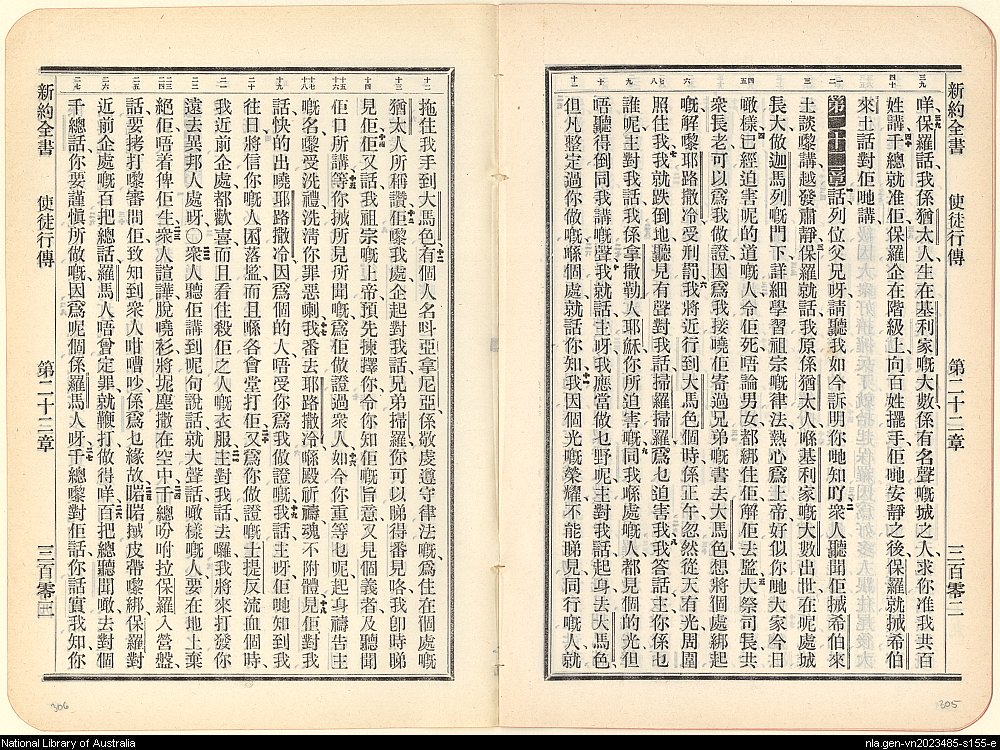 新約全書　使徒行傳　第二十二章　三百零二
咩保羅話我係猶太人生在基利家嘅大數係有名聲嘅城之人求你准我共百
姓講千總就准佢保羅企在階級上向百姓擺手佢哋安靜之後保羅就搣希伯
來土話對佢哋講
第二十二章 話列位父兄呀請聽我如今訴明你哋知吖衆人聽聞佢搣希伯來
土談嚟講越發肅靜保羅就話我原係猶太人喺基利家嘅大數出世在呢處城
長大做迦馬列嘅門下詳細學習祖宗嘅律法熱心爲上帝好似你哋大家今日
噉樣已經迫害呢的道嘅人令佢死唔論男女都綁住佢解佢去監大祭司長共
衆長老可以爲我做證因爲我接嘵佢寄過兄弟嘅書去大馬色想將個處綁起
嘅解嚟耶路撒冷受刑罰我將近行到大馬色個時係正午忽然從天有光周圍
照住我我就跌倒地聽見有聲對我話掃羅掃羅爲乜迫害我我答話主你係乜
誰呢主對我話我係拿撒勒人耶穌你所迫害嘅同我喺處嘅人都見個的光但
唔聽得倒同我講嘅聲我就話主呀我應當做乜野呢主對我話起身去大馬色
但凡整定過你做嘅喺個處就話你知我因個光嘅榮耀不能睇見同行嘅人就
拖住我手到大馬色有個人名呌亞拿尼亞係敬虔遵守律法嘅爲住在個處嘅
猶太人所稱讚佢嚟我處企起對我話兄弟掃羅你可以睇得番見咯我卽時睇
見佢佢又話我祖宗嘅上帝預先揀擇你令你知佢嘅旨意又見個義者及聽聞
佢口所講等你搣所見所聞嘅爲佢做證過衆人如今你重等乜呢起身禱告主
嘅名嚟受洗禮洗淸你罪惡喇我番去耶路撒冷喺殿祈禱魂不附體見佢對我
話快的出嘵耶路撒冷因爲個的人唔受你爲我做證嘅我話主呀佢哋知到我
往日將信你嘅人囚落監而且喺各會堂打佢又爲你做證嘅士提反流血個時
我近前企處都歡喜而且看住殺佢之人嘅衣服主對我話去囉我將來打發你
遠去異邦人處呀〇衆人聽佢講到呢句說話就大聲話噉樣嘅人要在地上棄
絕佢唔着俾佢生衆人諠譁脫嘵衫將坭塵撒在空中千總吩咐拉保羅入營盤
話要拷打嚟審問佢致知到衆人咁嘈吵係爲乜緣故啱啱搣皮帶嚟綁保羅對
近前企處嘅百把總話羅馬人唔曾定罪就鞭打做得咩百把總聽聞噉去對個
千總話你要謹愼所做嘅因爲呢個係羅馬人呀千總嚟對佢話你話實我知你
新約全書　使徒行傳　第二十二章　三百零三
306
305
National Library of Australia
nla.gen-vn2023485-s155-e